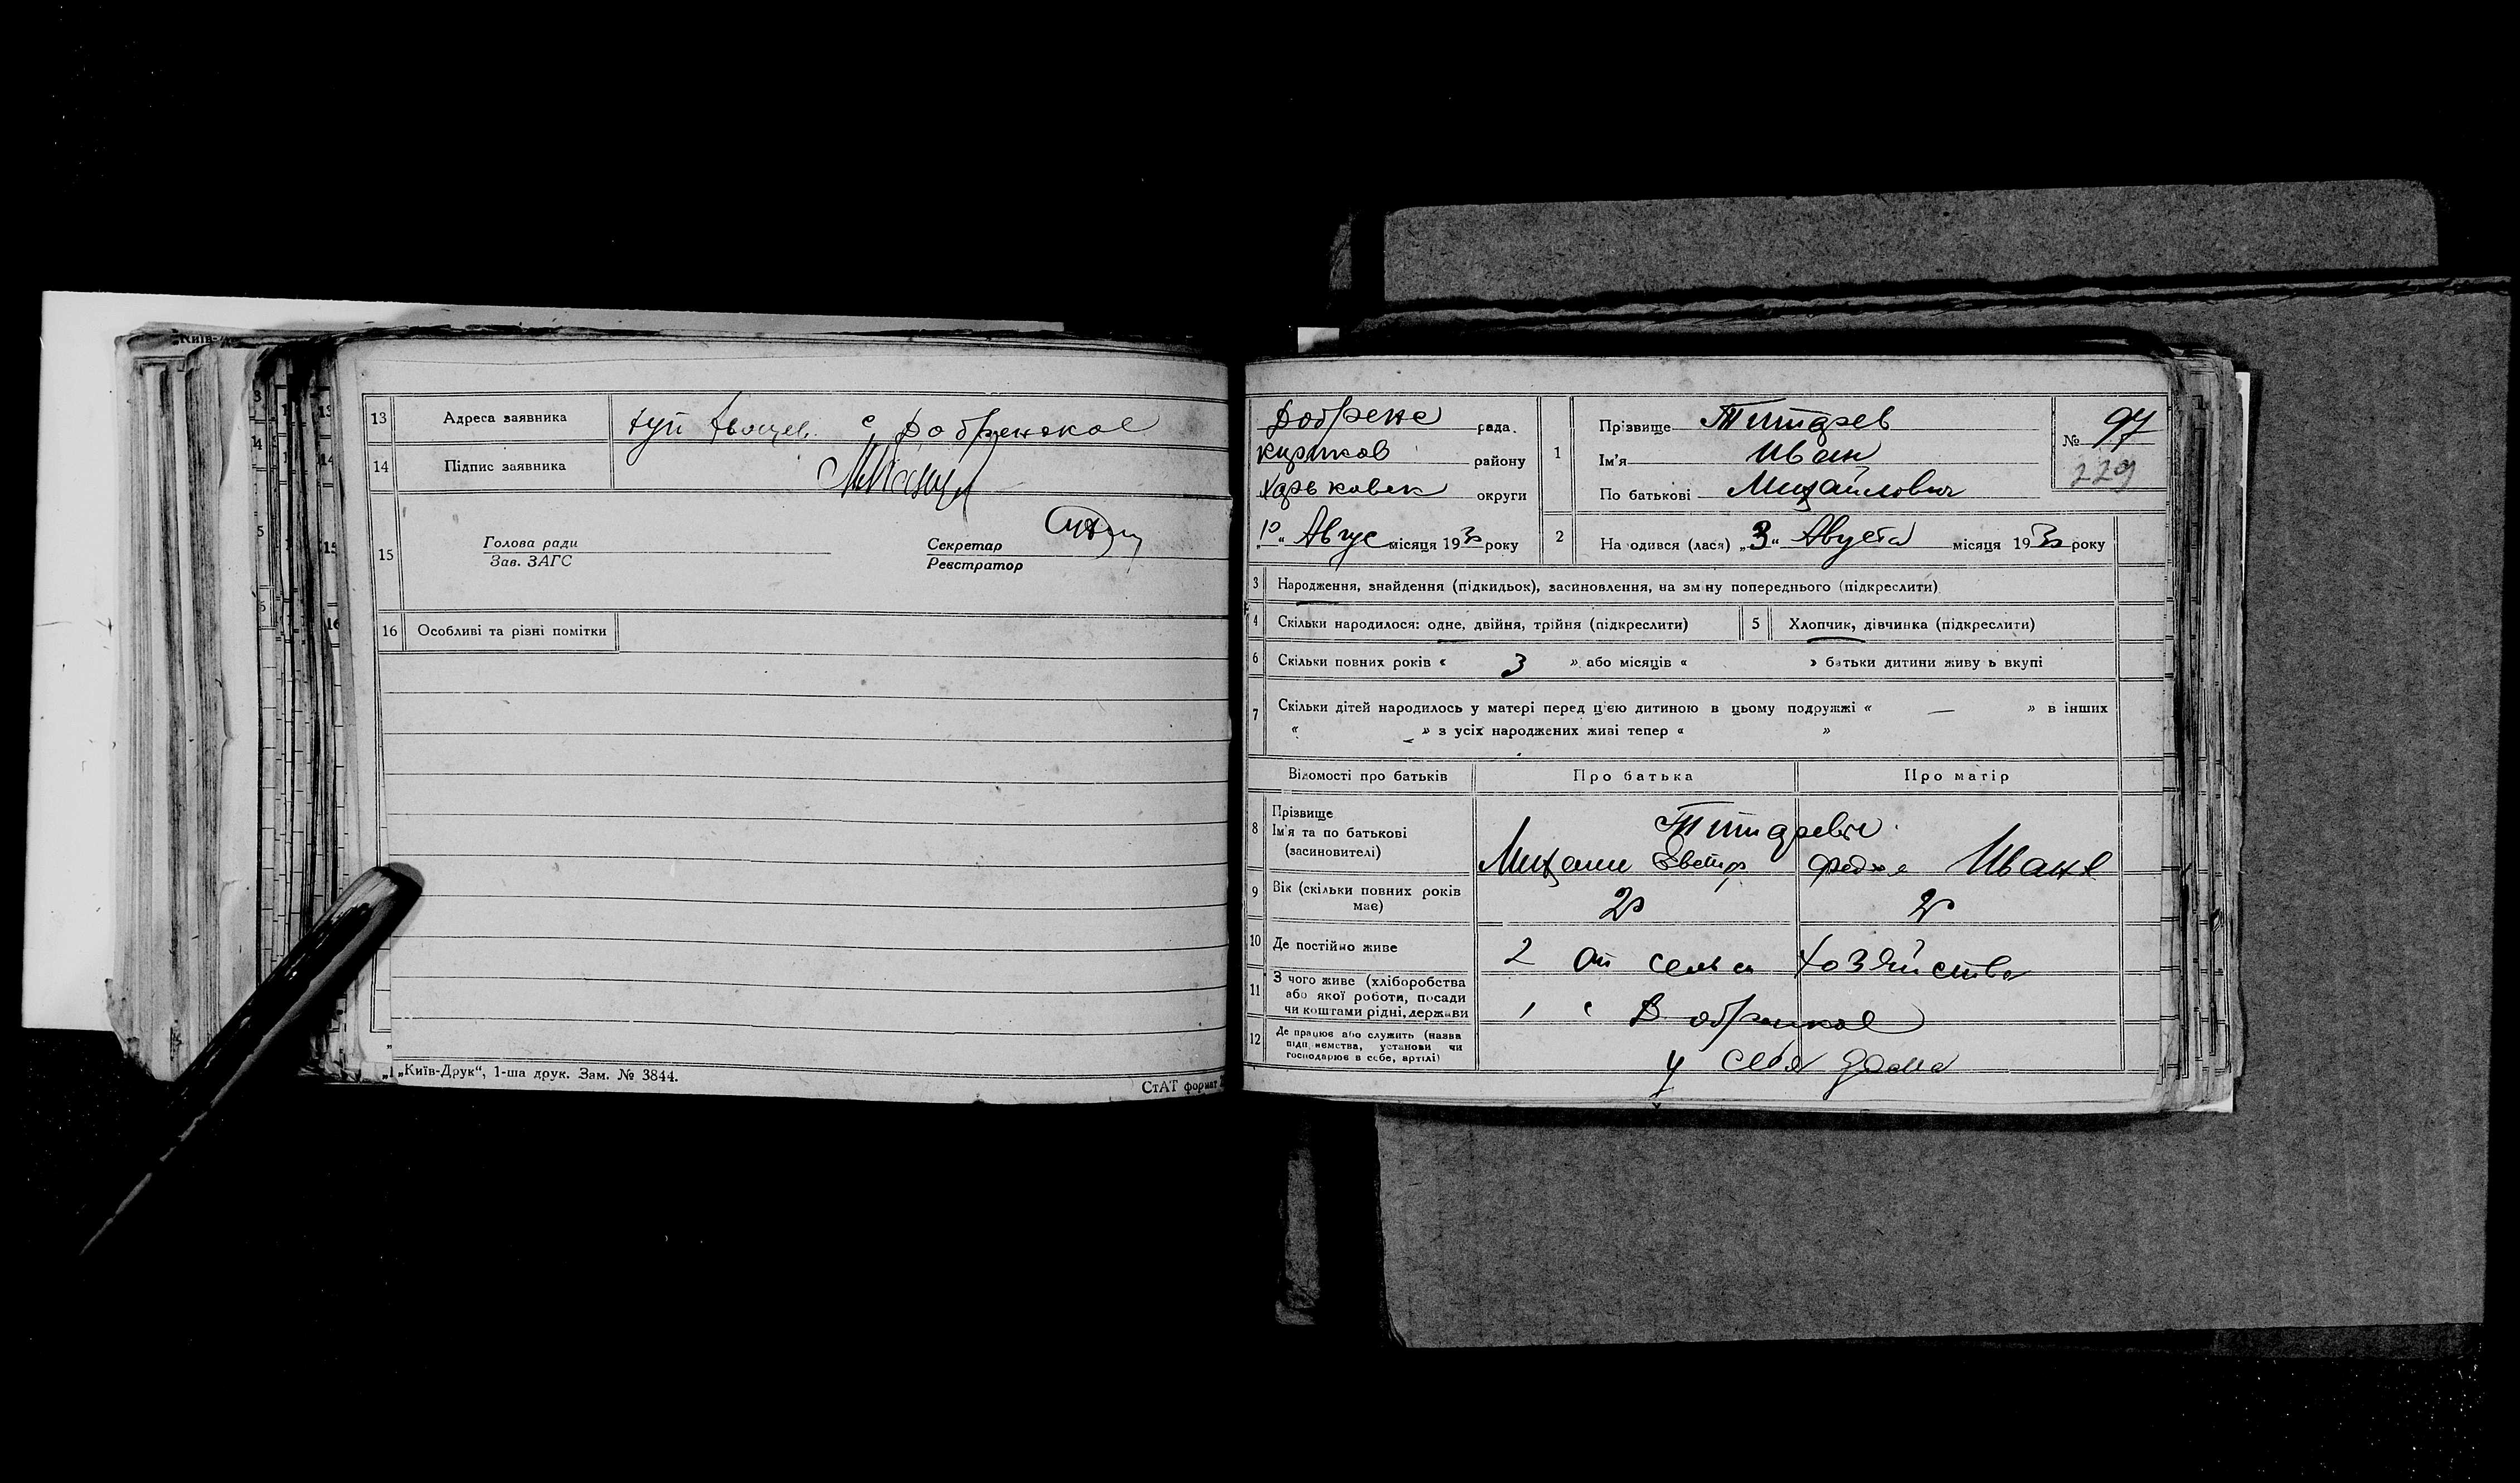 13 Адреса заявника с Добренское
14 Підпис заявника
15 Голова ради
Зав. ЗАГС
Секретар
Реєстратор
16 Особливі та різні помітки
„Київ-Друк“, 1-ша друк. Зам. № 3844.
СтАТ формат
Добрене рада.
района району
Харьковск округи
„10“ Авгус місяця 1930 року
1 Прізвище Титарев
Ім'я Иван
По батькові Михайлович
№ 97
229
2 На одився (лася) „3“ Августа місяця 1930 року
3 Народження, знайдення (підкидьок), засиновлення, на зміну попереднього (підкреслити)
4 Скільки народилося: одне, двійня, трійня (підкреслити)
5 Хлопчик, дівчинка (підкреслити)
6 Скільки повних років « 3 » або місяців « » батьки дитини живу ь вкупі
7 Скільки дітей народилось у матері перед цією дитиною в цьому подружжі « — » в інших
« » з усіх народжених живі тепер « »
Відомості про батьків Про батька Про матір
8 Прізвище
Ім'я та по батькові
(засиновителі)
Титаревы
Михаил Иване
9 Вік (скільки повних років
має)
20 20
10 Де постійно живе
2 От сельск хозяйства
11 З чого живе (хліборобства
або якої роботи, посади
чи коштами рідні, держави
1 с Добренское
12 Де працює або служить (назва
підприємства, установи чи
господарює в себе, артілі)
у себя дома